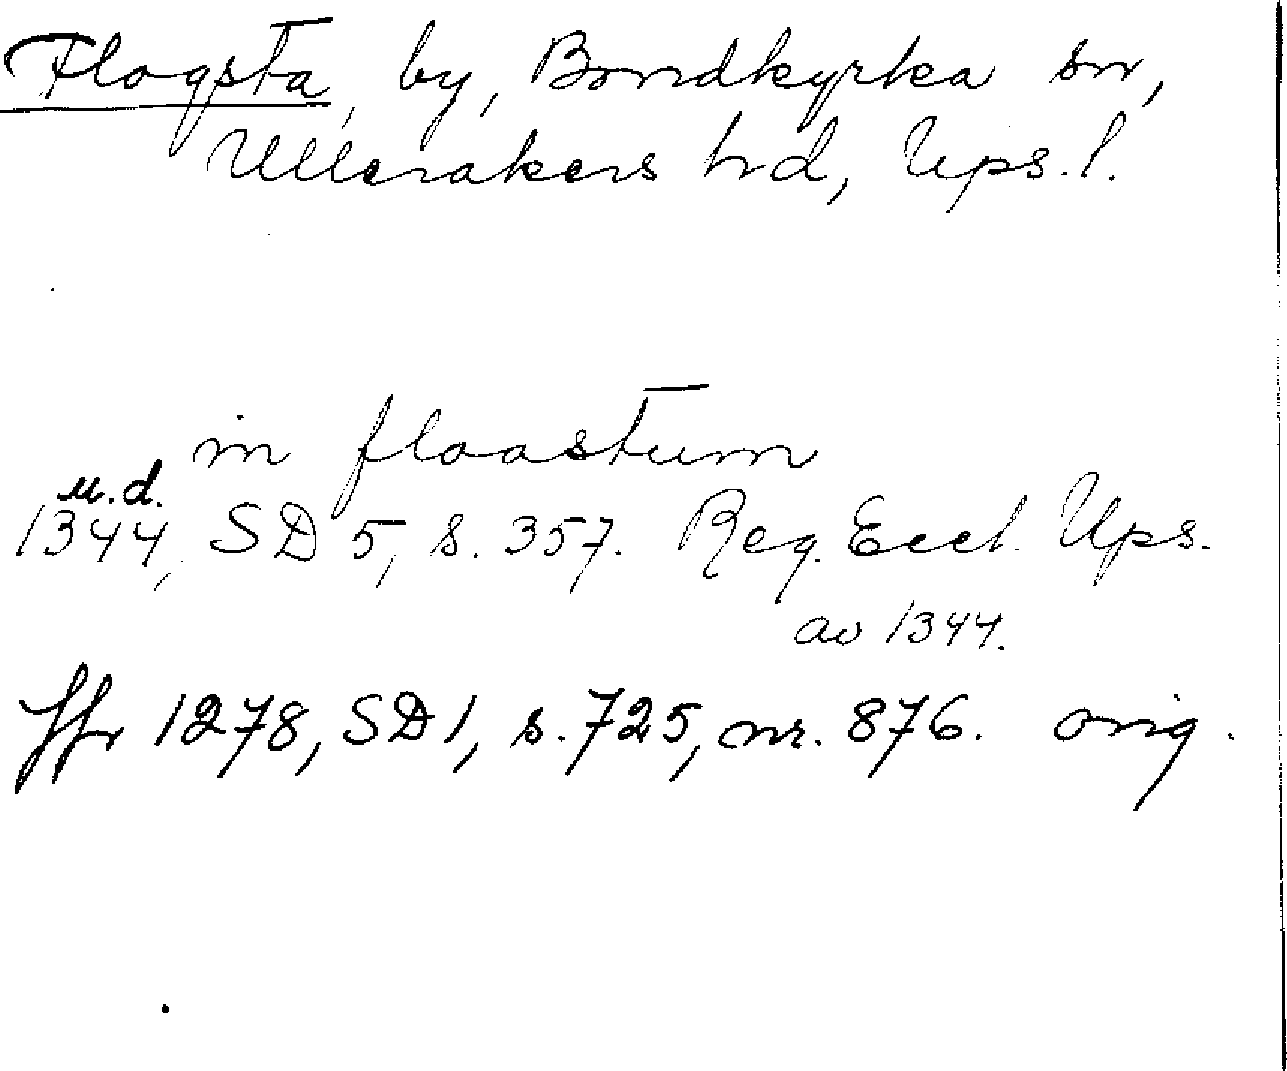 Flogsta, by, Bondkyrka sn,
Ullerakers hd, Ups. l.
in flaastum
u.d.
1344, SD 5, s. 357. Reg. Eccl. Ups.
av 1344.
Jfr 1278, SD 1, s. 725, nr. 876. orig.